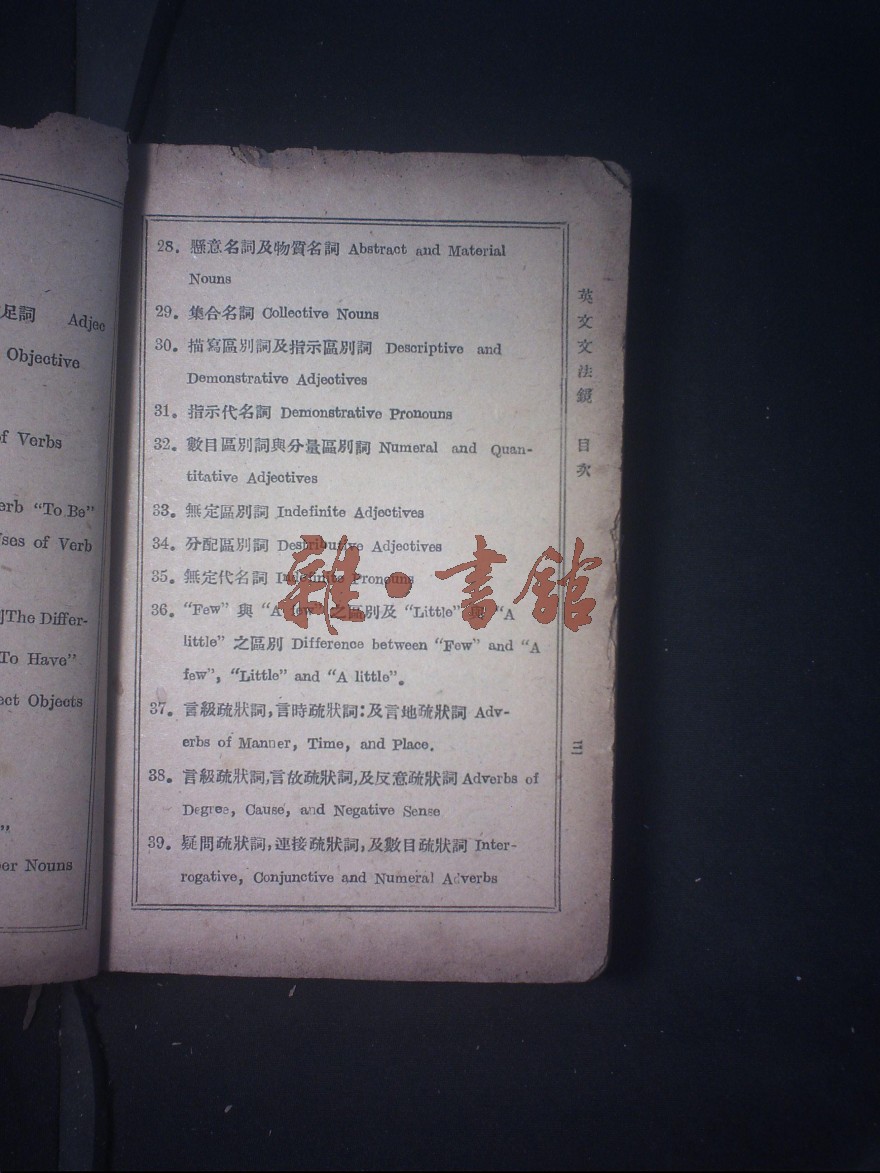 足詞 Adjec
Objective
of Verbs
erb “To Be”
Uses of Verb
]The Differ-
To Have”
ect Objects
”
er Nouns
28. 懸意名詞及物質名詞 Abstract and Material
Nouns
29. 集合名詞 Collective Nouns
30. 描寫區別詞及指示區別詞 Descriptive and
Demonstrative Adjectives
31. 指示代名詞 Demonstrative Pronouns
32. 數目區別詞與分量區別詞 Numeral and Quan-
titative Adjectives
33. 無定區別詞 Indefinite Adjectives
34. 分配區別詞 Destributive Adjectives
35. 無定代名詞 Indefinite Pronouns
36. “Few” 與 “A few” 之區別及 “Little” 與 “A
little” 之區別 Difference between “Few” and “A
few”, “Little” and “A little”.
37. 言級疏狀詞,言時疏狀詞:及言地疏狀詞 Adv-
erbs of Manner, Time, and Place.
38. 言級疏狀詞,言故疏狀詞,及反意疏狀詞 Adverbs of
Degree, Cause, and Negative Sense
39. 疑問疏狀詞,連接疏狀詞,及數目疏狀詞 Inter-
rogative, Conjunctive and Numeral Adverbs
英文文法鏡 目次
三
雜·書館